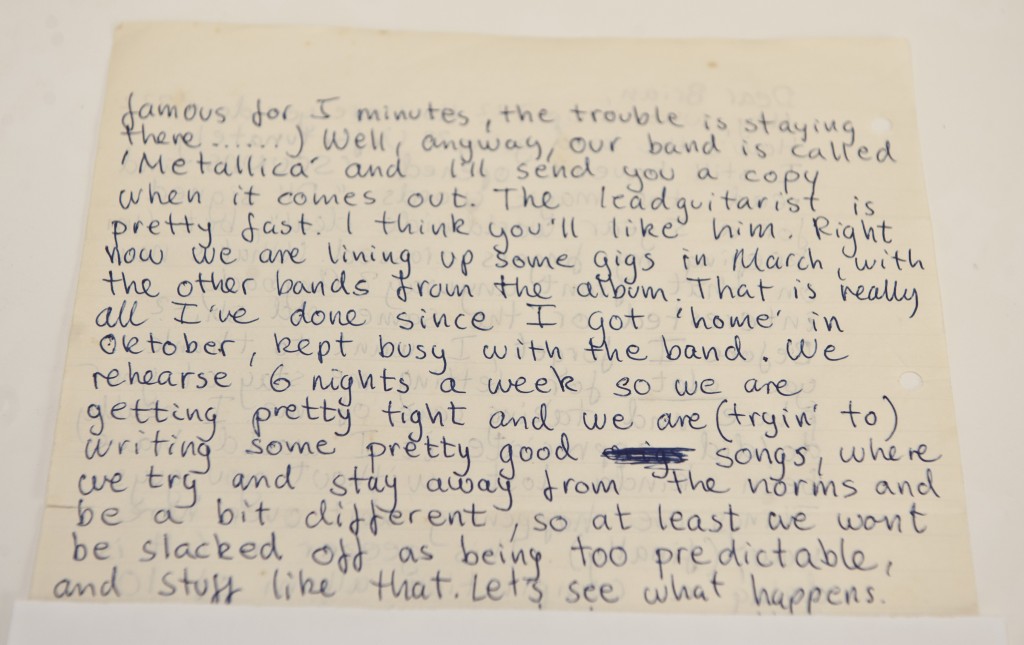 famous for 5 minutes, the trouble is staying
there.......) Well, anyway, our band is called
'Metallica' and I'll send you a copy
when it comes out. The leadguitarist is
pretty fast. I think you'll like him. Right
now we are lining up some gigs in March, with
the other bands from the album. That is really
all I've done since I got 'home' in
Oktober, kept busy with the band. We
rehearse 6 nights a week so we are
getting pretty tight and we are (tryin' to)
writing some pretty good songs, where
we try and stay away from the norms and
be a bit different, so at least we wont
be slacked off as being too predictable,
and stuff like that. Let's see what happens.